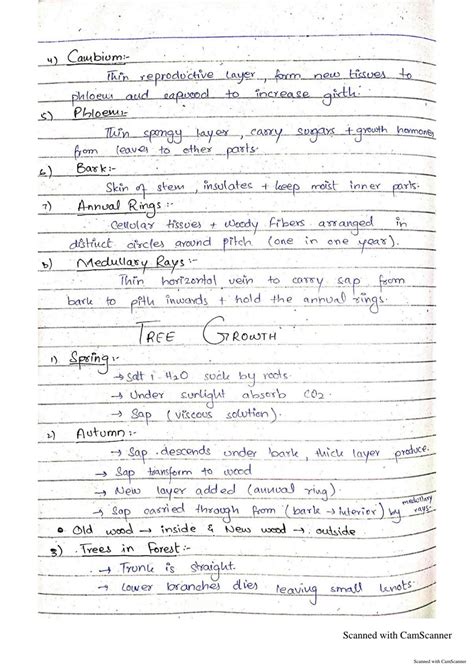 4) Cambium:-
Thin reproductive layer, form new tissues to
phloem and sapwood to increase girth.
5) Phloem:-
Thin spongy layer, carry sugars + growth hormones
from leaves to other parts.
6) Bark:-
Skin of stem, insulates + keep moist inner parts.
7) Annual Rings:-
Cellular tissues + Woody Fibers arranged in
distinct circles around pitch (one in one year).
b) Medullary Rays:-
Thin horizontal vein to carry sap from
bark to pith inwards + hold the annual rings.
TREE GROWTH
1) Spring:-
→ Salt i H2O suck by roots.
→ Under sunlight absorb CO2
→ Sap (viscous solution).
2) Autumn:-
→ Sap descends under bark, thick layer produce.
→ Sap transform to wood
→ New layer added (annual ring).
→ Sap carried through from (bark → interior) by medullary rays.
• Old wood → inside & New wood → outside
3) Trees in Forest:-
→ Trunk is straight.
→ Lower branches dies leaving small knots.
Scanned with CamScanner
Scanned with CamScanner